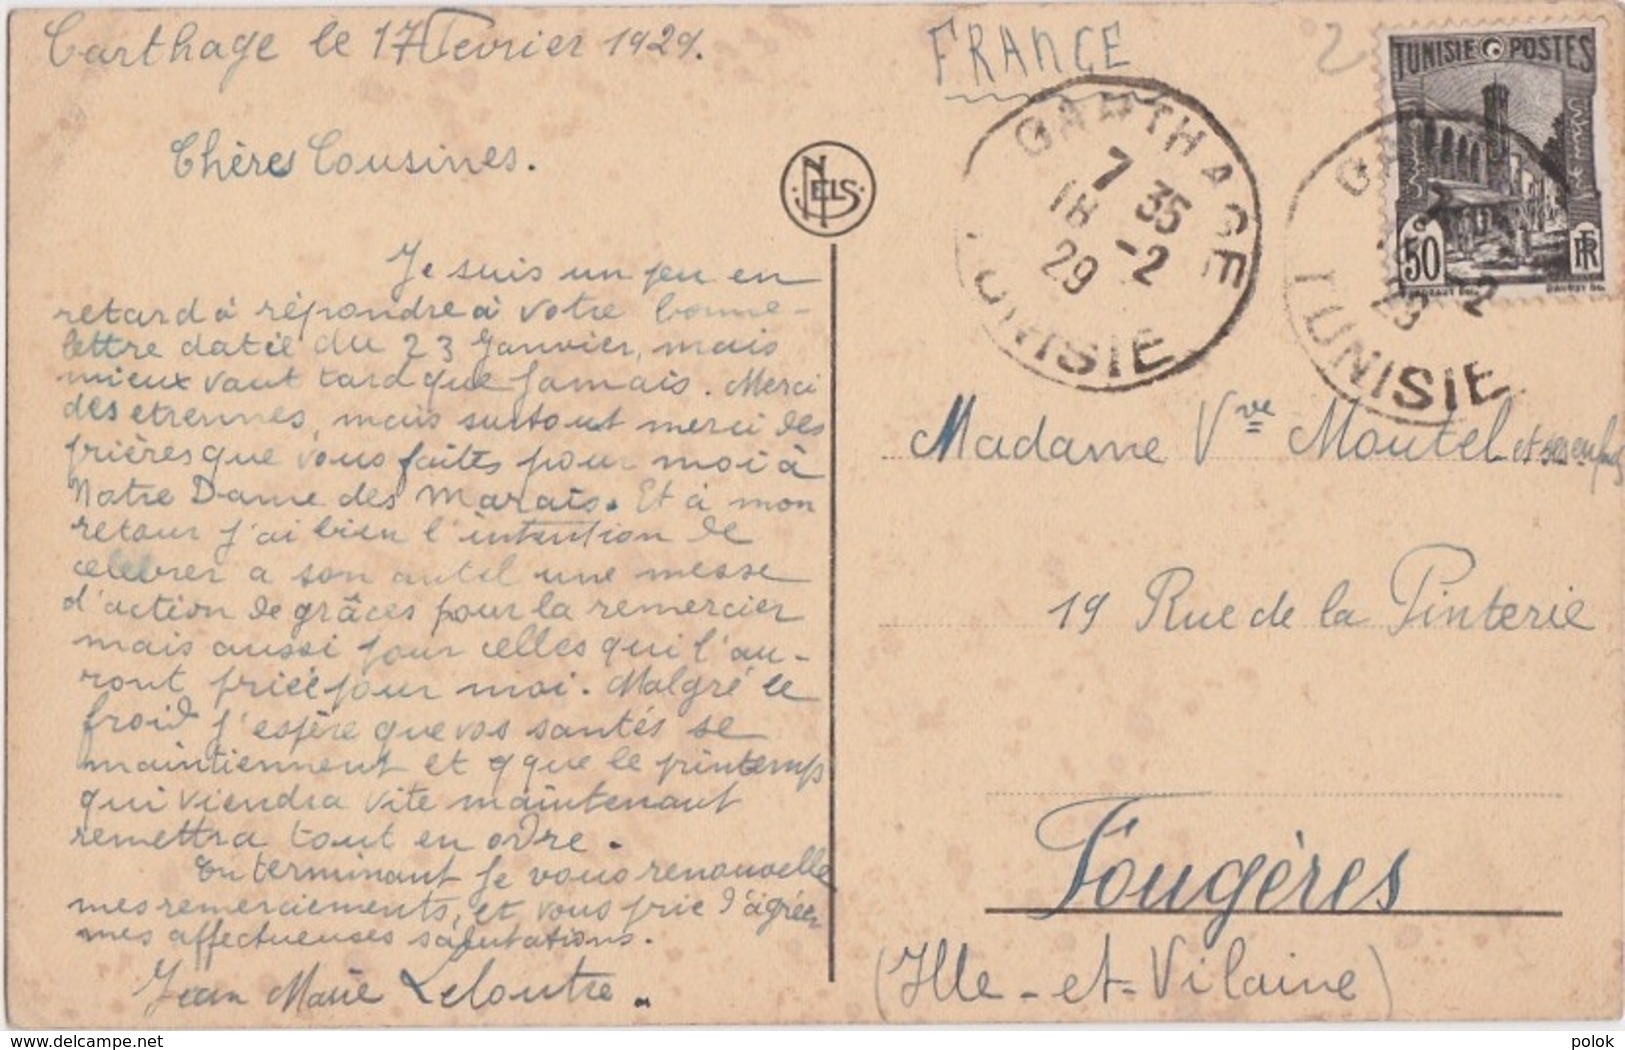 Carthage le 17 Fevrier 1929.
Chères Cousines.
Je suis un peu en
retard à répondre à votre bonne
lettre datée du 23 Janvier, mais
mieux vaut tard que Jamais. Merci
des etrennes, mais surtout merci des
prières que vous faites pour moi à
Notre Dame des Marais. Et à mon
retour j'ai bien l'intention de
celebrer a son autel une messe
d'action de grâces pour la remercier
mais aussi pour celles qui l'au-
ront priée pour moi. Malgré le
froid j'espère que vos santés se
maintiennent et q que le printemps
qui viendra vite maintenant
remettra tout en ordre.
En terminant je vous renouvelle
mes remerciements, et vous prie d'agréer
mes affectueuses salutations.
Jean Marie Leloutre.
NELS
FRANCE
2
CARTHAGE
7 35
18 -2
29
TUNISIE
TUNISIE POSTES
50
RF
TUNISIE
Madame Vve Moutel et ses enfants
19 Rue de la Pinterie
Fougères
(Ille-et-Vilaine)
polok